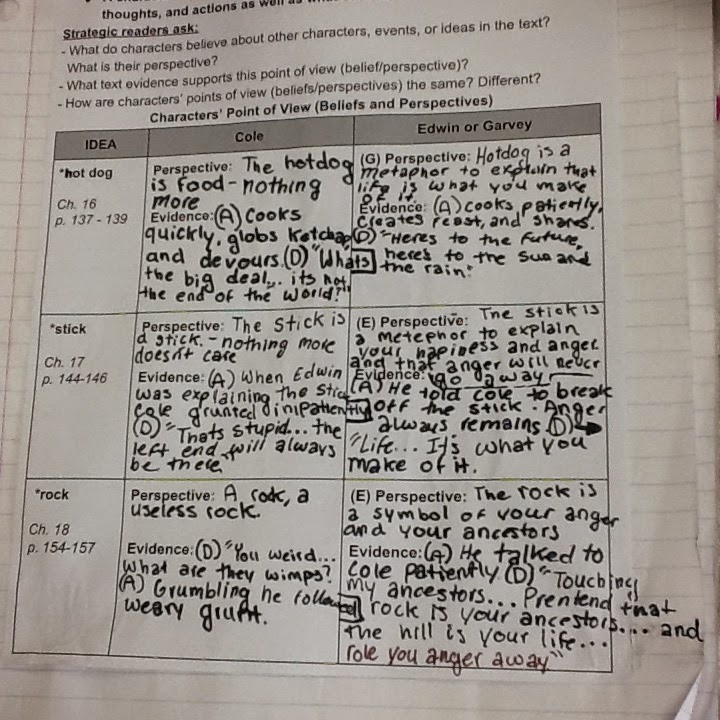 thoughts, and actions as well as
Strategic readers ask:
- What do characters believe about other characters, events, or ideas in the text?
What is their perspective?
- What text evidence supports this point of view (belief/perspective)?
- How are characters' points of view (beliefs/perspectives) the same? Different?
Characters' Point of View (Beliefs and Perspectives)
IDEA
Cole
Edwin or Garvey
*hot dog
Ch. 16
p. 137 - 139
Perspective: The hotdog
is food - nothing
more
Evidence: (A) Cooks
quickly, globs Ketchup
and devours. (D) "Whats
the big deal... its not
the end of the world?"
(G) Perspective: Hotdog is a
metaphor to explain that
life is what you make
of it.
Evidence: (A) cooks patiently,
creates feast, and shares.
(D) "Heres to the future,
here's to the sun and
the rain."
*stick
Ch. 17
p. 144-146
Perspective: The Stick is
a stick. - nothing more
doesnt care
Evidence: (A) When Edwin
was explaining the stick
Cole grunted inipatiently
(D) "Thats stupid... the
left end will always
be there
(E) Perspective: The stick is
a metephor to explain
your hapiness and anger
and that anger will never
Evidence: go away
(A) He told cole to break
off the stick. Anger
always remains (D)→
"Life... It's what you
make of it.
*rock
Ch. 18
p. 154-157
Perspective: A rock, a
useless rock.
Evidence: (D) "You weird...
what are they wimps?
(A) Grumbling he followed
weary grunt.
(E) Perspective: The rock is
a symbol of your anger
and your ancestors
Evidence: (A) He talked to
Cole patiently (D) "Touching
my ancestors... Prentend that
rock is your ancestors.... and
the hill is your life...
role you anger away"